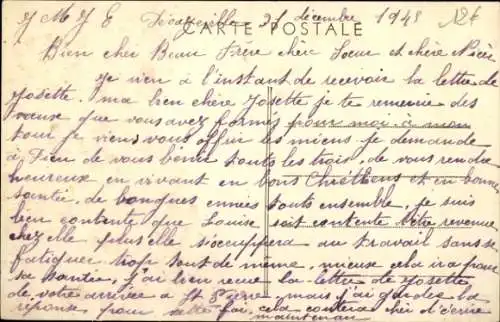 J M J E Decazeville 21 décembre 1948
CARTE POSTALE
Bien cher Beau Frère chère Soeur et chère Nièce
je vien à l'instant de recevoir la lettre de
Josette. ma bien chère Josette je te remercie des
voeuse que vous avez formés pour moi. à mon
tour je viens vous offrir les miens je demande
à Dieu de vous bénir touts les trois. de vous rendre
heureux en vivant en bons Chrétiens et en bonne
santée. de longues années touts ensemble, je suis
bien contente que Louise soit contente d'être revenue
chez elle. plus elle s'occuppera au travail sans se
fatiguer trop tout de même. mieuse cela ira pour
sa santée, j'ai bien reçue la lettre de Josette
de votre arrivée à St mais j'ai gardée la
réponse pour cette foi, cela coutera cher d'écrire
maintenant